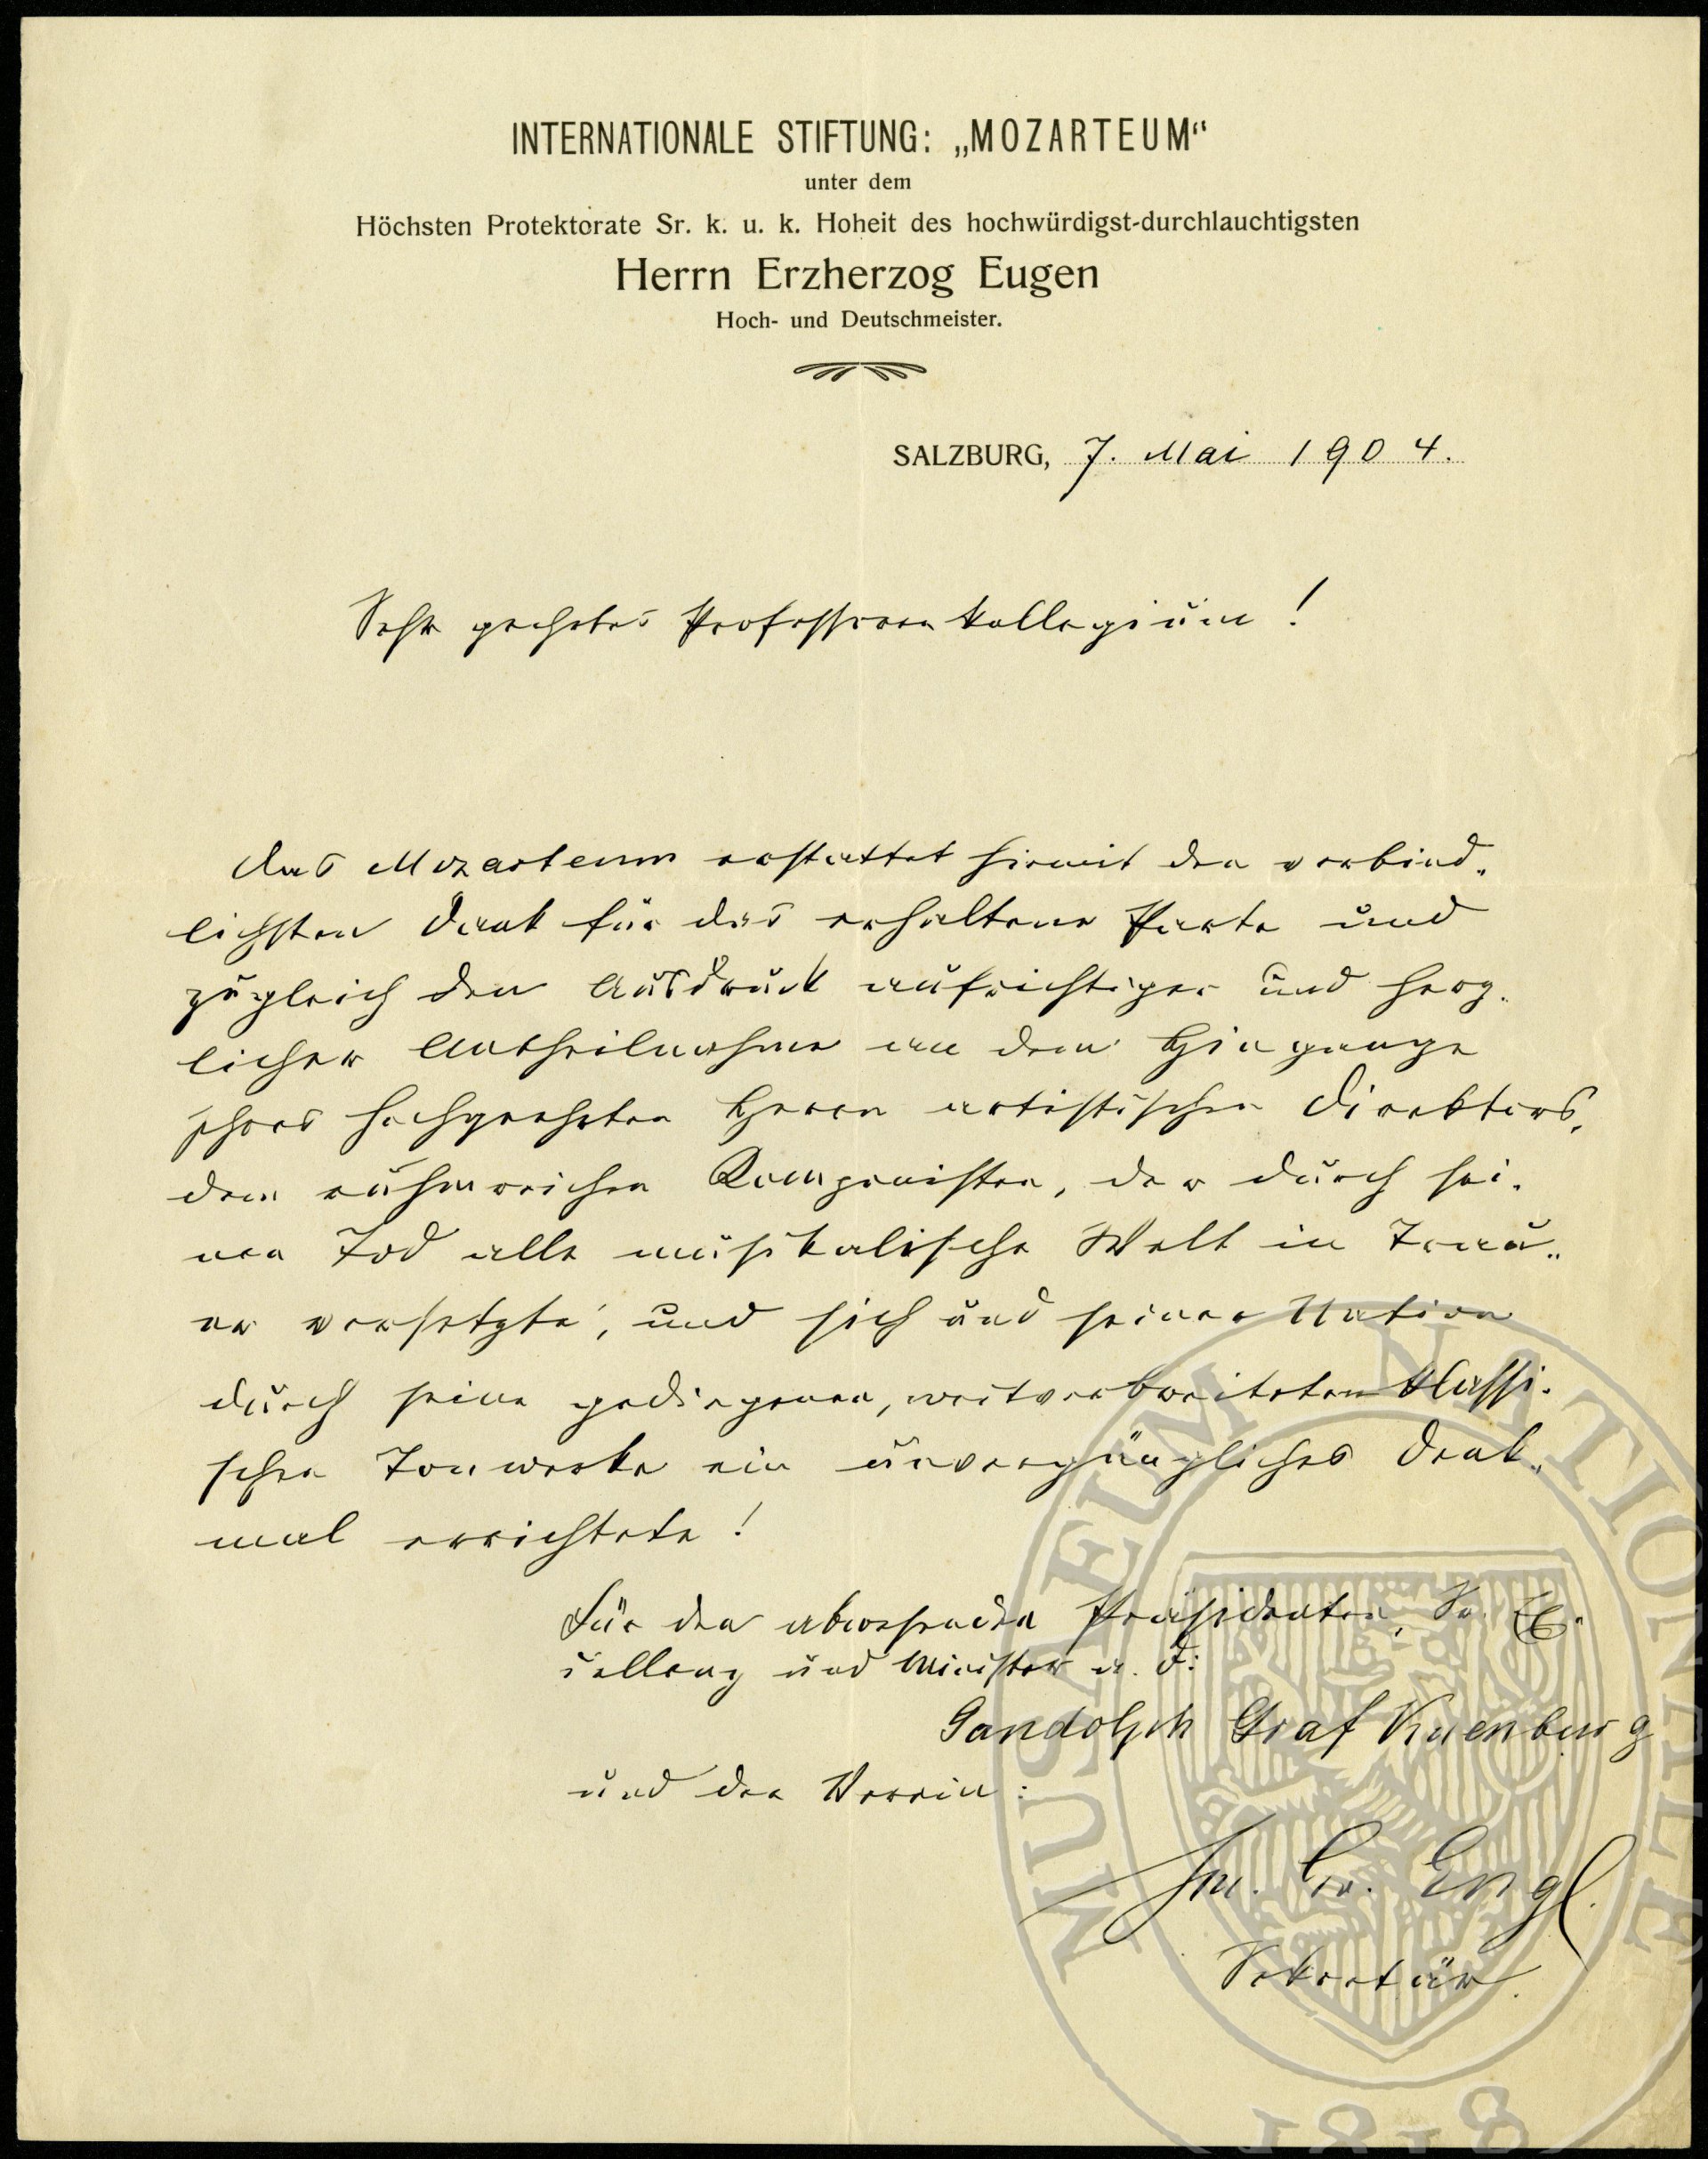 INTERNATIONALE STIFTUNG: „MOZARTEUM“
unter dem
Höchsten Protektorate Sr. k. u. k. Hoheit des hochwürdigst-durchlauchtigsten
Herrn Erzherzog Eugen
Hoch- und Deutschmeister.
SALZBURG, 7. Mai 1904.
Sehr geehrtes Professorenkollegium!
Das Mozarteum erstattet hiemit den verbind„
lichsten Dank für das erhaltene Parte und
zugleich den Ausdruck aufrichtiger und herz„
licher Antheilnahme an dem Hingange
ihres hochgeehrten Herrn artistischen Direktors,
dem ruhmreichen Komponisten, der durch sei„
nen Tod alle musikalische Welt in Trau„
er versetzte, und sich und seiner Nation
durch seine gediegenen, weitverbreiteten klassi„
schen Tonwerke ein unvergängliches Denk„
mal errichtete!
Für den abwesenden Präsidenten, Sr. Ex„
cellenz und Minister a. D:
Gandolph Graf Kuenburg
und den Verein:
Joh. Ev. Engl.
Sekretär.
MUSAEUM NATIONALE
1818